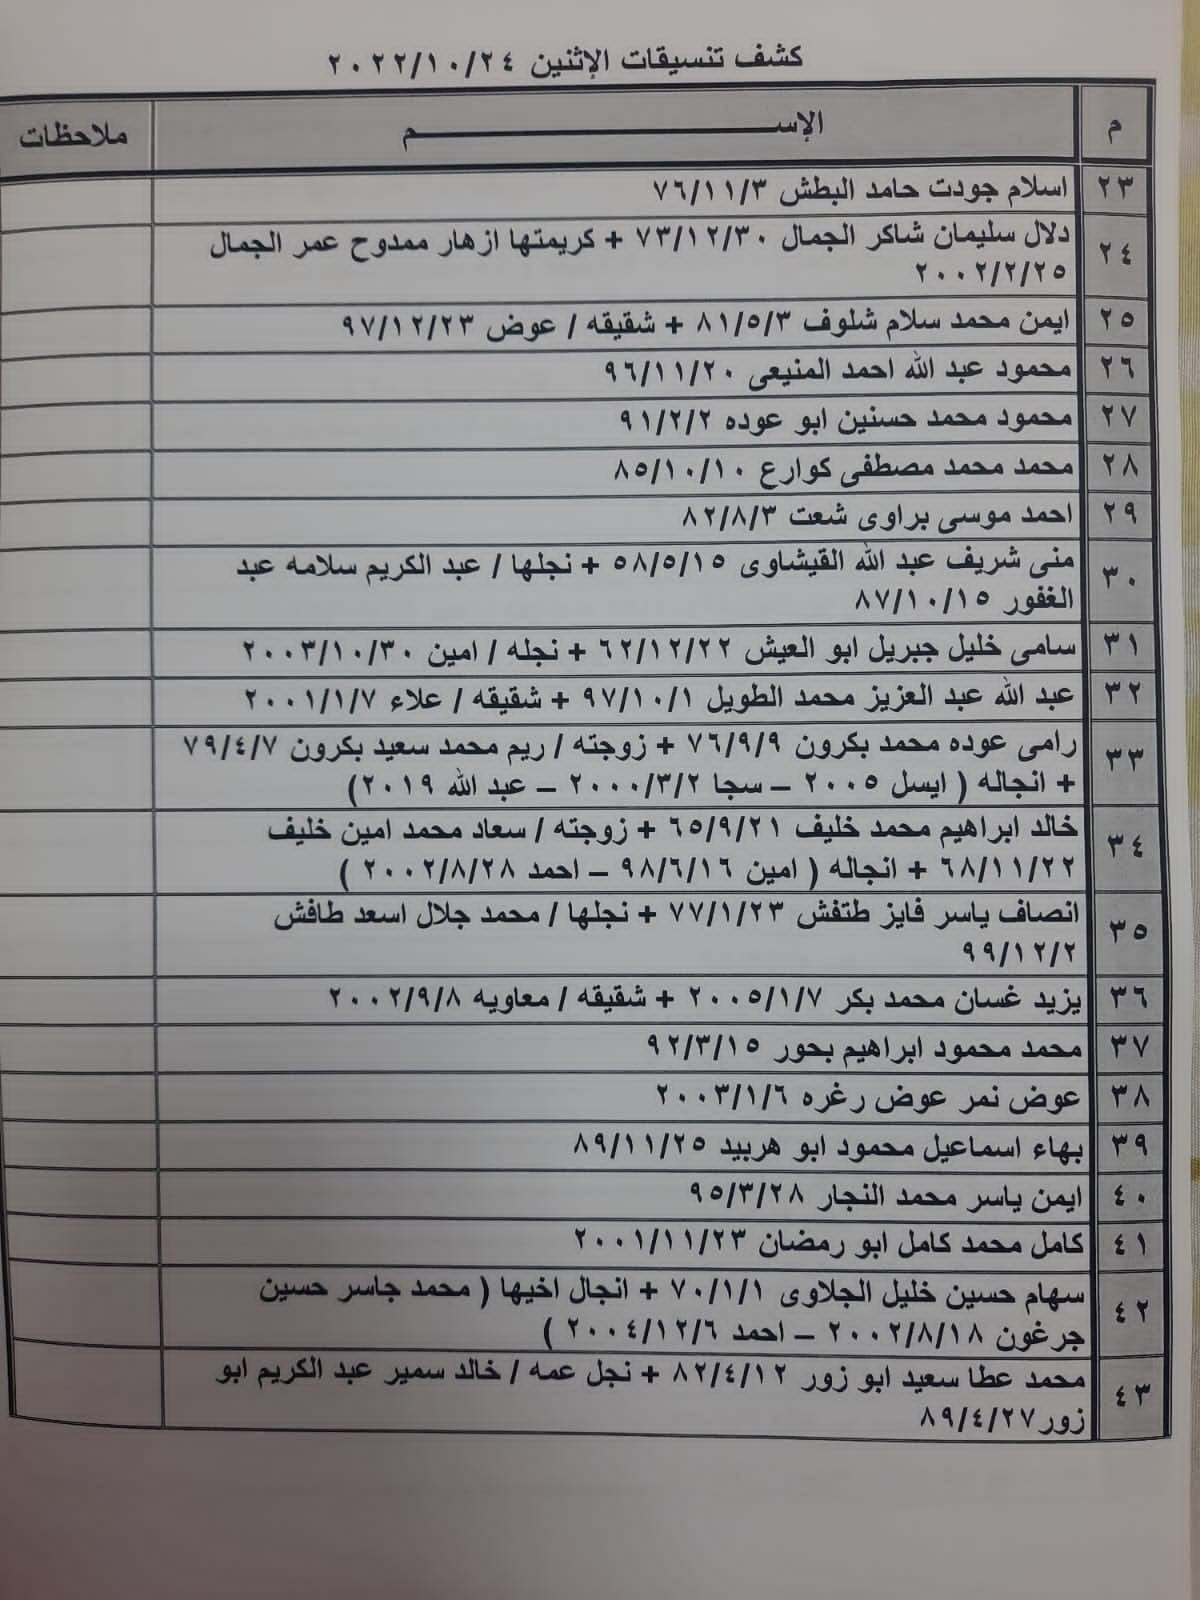 كشف تنسيقات الإثنين ٢٠٢٢/١٠/٢٤
م الإســــــــم ملاحظات
٢٣ اسلام جودت حامد البطش ٧٦/١١/٣
٢٤ دلال سليمان شاكر الجمال ٧٣/١٢/٣٠ + كريمتها ازهار ممدوح عمر الجمال
٢٠٠٢/٢/٢٥
٢٥ ايمن محمد سلام شلوف ٨١/٥/٣ + شقيقه / عوض ٩٧/١٢/٢٣
٢٦ محمود عبد الله احمد المنيعى ٩٦/١١/٢٠
٢٧ محمود محمد حسنين ابو عوده ٩١/٢/٢
٢٨ محمد محمد مصطفى كوارع ٨٥/١٠/١٠
٢٩ احمد موسى براوى شعت ٨٢/٨/٣
٣٠ منى شريف عبد الله القيشاوى ٥٨/٥/١٥ + نجلها / عبد الكريم سلامه عبد
الغفور ٨٧/١٠/١٥
٣١ سامى خليل جبريل ابو العيش ٦٢/١٢/٢٢ + نجله / امين ٢٠٠٣/١٠/٣٠
٣٢ عبد الله عبد العزيز محمد الطويل ٩٧/١٠/١ + شقيقه / علاء ٢٠٠١/١/٧
٣٣ رامى عوده محمد بكرون ٧٦/٩/٩ + زوجته / ريم محمد سعيد بكرون ٧٩/٤/٧
+ انجاله ( ايسل ٢٠٠٥ – سجا ٢٠٠٠/٣/٢ – عبد الله ٢٠١٩)
٣٤ خالد ابراهيم محمد خليف ٦٥/٩/٢١ + زوجته / سعاد محمد امين خليف
٦٨/١١/٢٢ + انجاله ( امين ٩٨/٦/١٦ – احمد ٢٠٠٢/٨/٢٨ )
٣٥ انصاف ياسر فايز طتفش ٧٧/١/٢٣ + نجلها / محمد جلال اسعد طافش
٩٩/١٢/٢
٣٦ يزيد غسان محمد بكر ٢٠٠٥/١/٧ + شقيقه / معاويه ٢٠٠٢/٩/٨
٣٧ محمد محمود ابراهيم بحور ٩٢/٣/١٥
٣٨ عوض نمر عوض رغره ٢٠٠٣/١/٦
٣٩ بهاء اسماعيل محمود ابو هربيد ٨٩/١١/٢٥
٤٠ ايمن ياسر محمد النجار ٩٥/٣/٢٨
٤١ كامل محمد كامل ابو رمضان ٢٠٠١/١١/٢٣
٤٢ سهام حسين خليل الجلاوى ٧٠/١/١ + انجال اخيها ( محمد جاسر حسين
جرغون ٢٠٠٢/٨/١٨ – احمد ٢٠٠٤/١٢/٦ )
٤٣ محمد عطا سعيد ابو زور ٨٢/٤/١٢ + نجل عمه / خالد سمير عبد الكريم ابو
زور٨٩/٤/٢٧